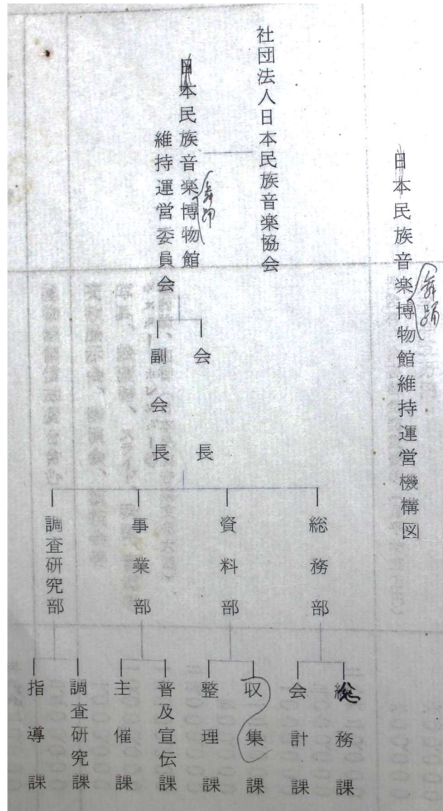 日本民族音楽博物館維持運営機構図
舞踊
社団法人日本民族音楽協会
日本民族音楽博物館
舞踊
維持運営委員会
会長
副会長
総務部
資料部
事業部
調査研究部
総務課
会計課
収集課
整理課
普及宣伝課
主催課
調査研究課
指導課